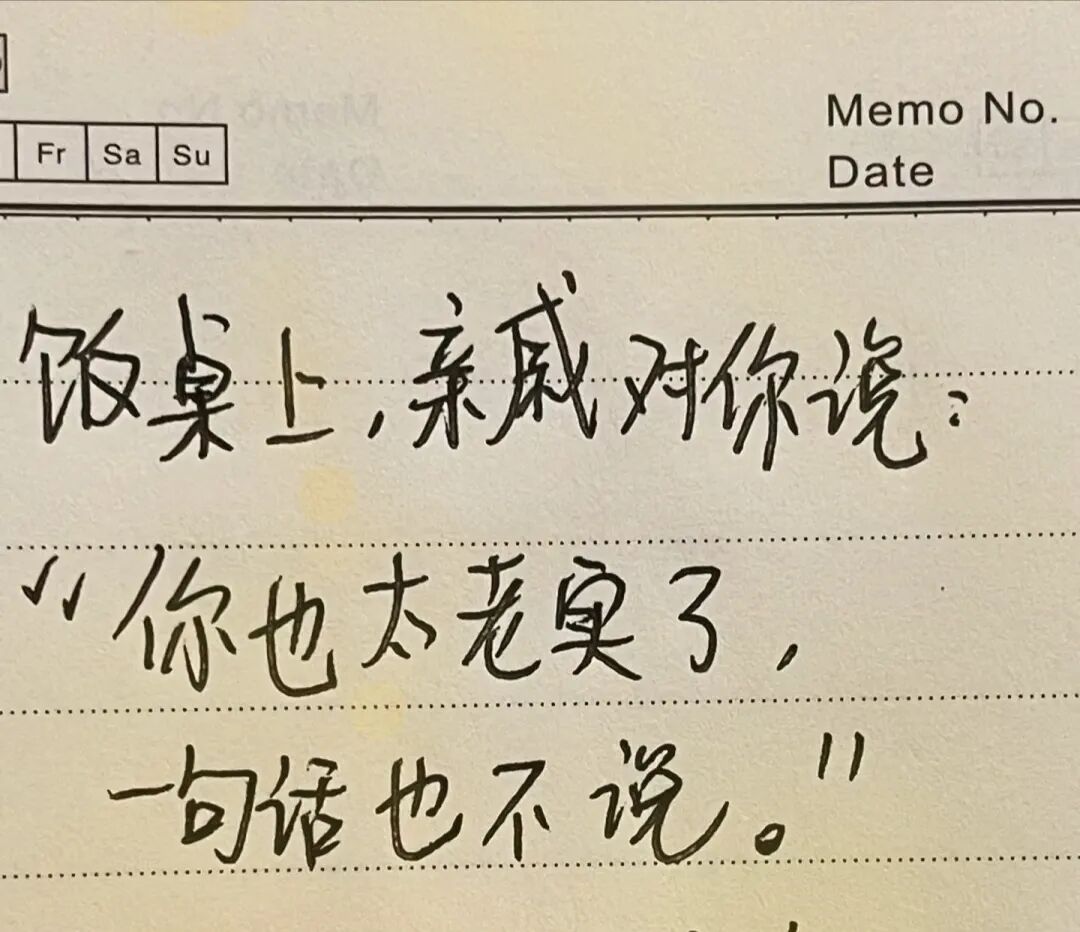 Fr Sa Su
Memo No.
Date
饭桌上,亲戚对你说:
"你也太老实了,
一句话也不说。"